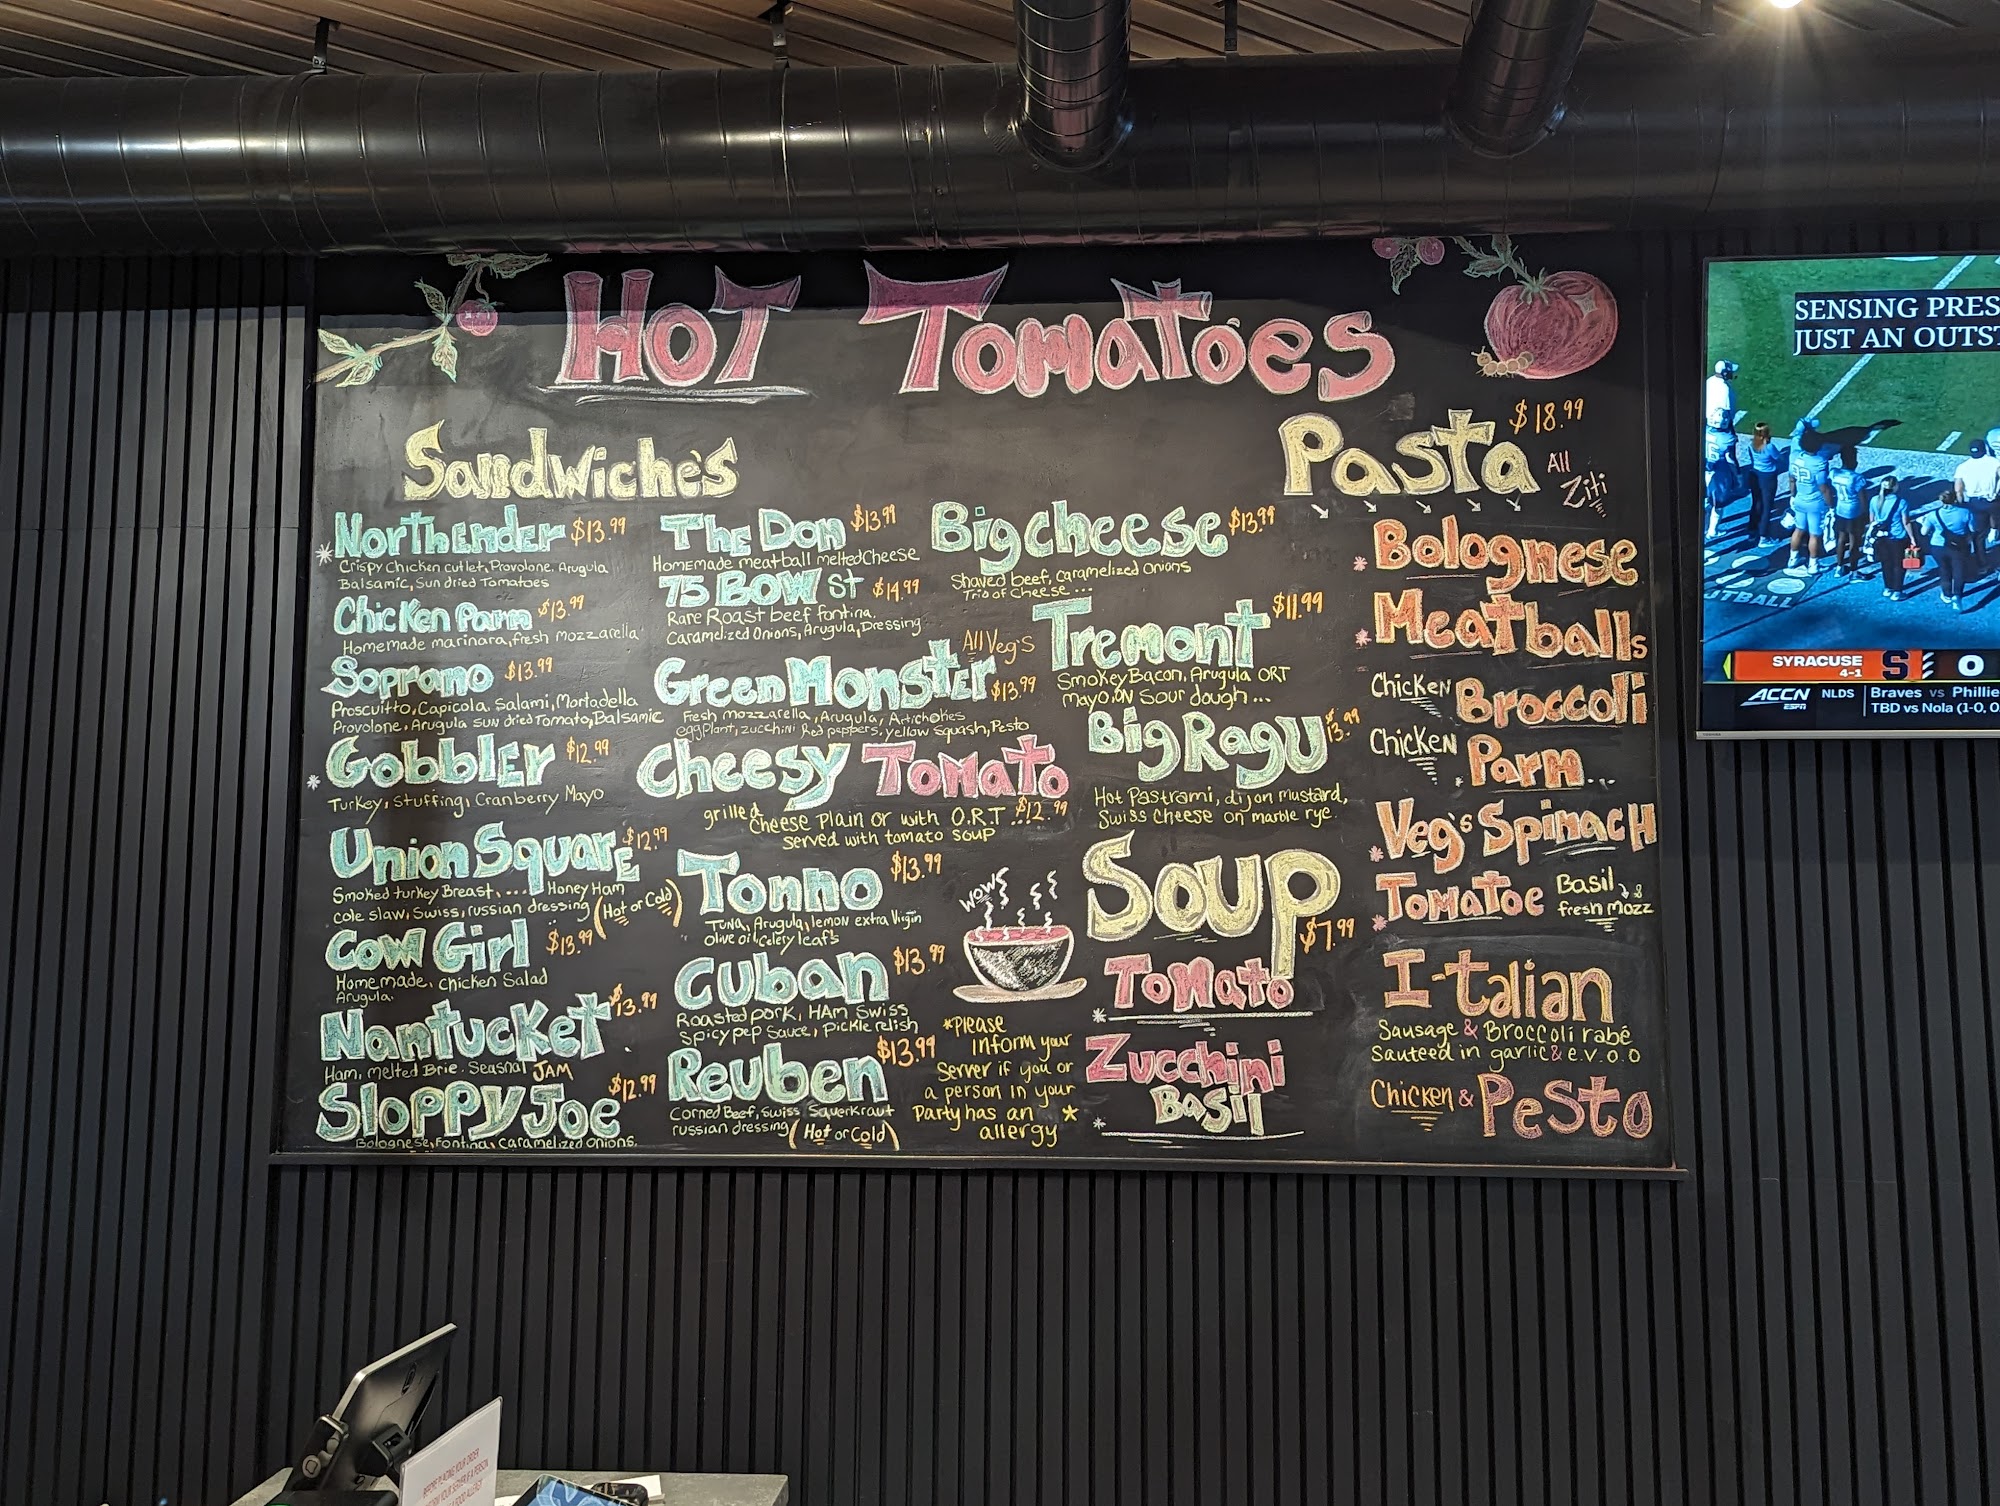 HOT TOMATOES
Sandwiche's
NorthEnder $13.99
Crispy Chicken cutlet, Provolone. Arugula
Balsamic, Sun dried Tomatoes
Chicken Parm $13.99
Homemade marinara, fresh mozzarella
Soprano $13.99
Proscuitto, Capicola. Salami, Mortadella
Provolone, Arugula sun dried Tomato, Balsamic
GobblEr $12.99
Turkey, Stuffing, Cranberry Mayo
Union SquarE $12.99
Smoked turkey Breast..... Honey Ham
cole slaw, Swiss, russian dressing (Hot or Cold)
Cow Girl $13.99
Homemade, chicken Salad
Arugula.
Nantucket $13.99
Ham, melted Brie. Seasnal JAM
Sloppy Joe $12.99
Bolognese, Fontina, caramelized onions.
The Don $13.99
Homemade meatball melted Cheese
75 BOW St $14.99
Rare Roast beef fontina.
Caramelized Onions, Arugula, Dressing
All Veg's
Green Monster $13.99
Fresh mozzarella, Arugula, Artichokes
eggplant, zucchini Red peppers, yellow squash, Pesto
Cheesy Tomato
grilled cheese plain or with O.R.T... $12.99
served with tomato soup
Tonno $13.99
Tuna, Arugula, lemon extra Virgin
Olive oil, Celery leafs
Cuban $13.99
Roasted pork, HAm Swiss
Spicy pep Sauce, pickle relish
Reuben $13.99
Corned Beef, Swiss Saurkraut
russian dressing (Hot or Cold)
Big cheese $13.99
Shaved beef, caramelized onions
Trio of Cheese...
Tremont $11.99
Smokey Bacon, Arugula ORT
mayo, ON Sour dough...
Big Ragu $13.99
Hot Pastrami, dijon mustard,
Swiss Cheese on marble rye.
WOW
*Please
inform your
Server if you or
a person in your
Party has an *
allergy
Soup $7.99
* Tomato
* Zucchini
Basil
Pasta $18.99
All
Ziti
* Bolognese
* Meatballs
Chicken Broccoli
Chicken Parm...
* Veg's Spinach
* Tomatoe Basil &
fresh mozz
I-talian
Sausage & Broccoli rabé
Sauteed in garlic & e.v.o.o
Chicken & Pesto
SENSING PRES
JUST AN OUTS
UTBALL
SYRACUSE
4-1
S
0
ACCN
ESPN
NLDS
Braves vs Phillie
TBD vs Nola (1-0, 0.
TOSHIBA
BEFORE PLACING YOUR ORDER